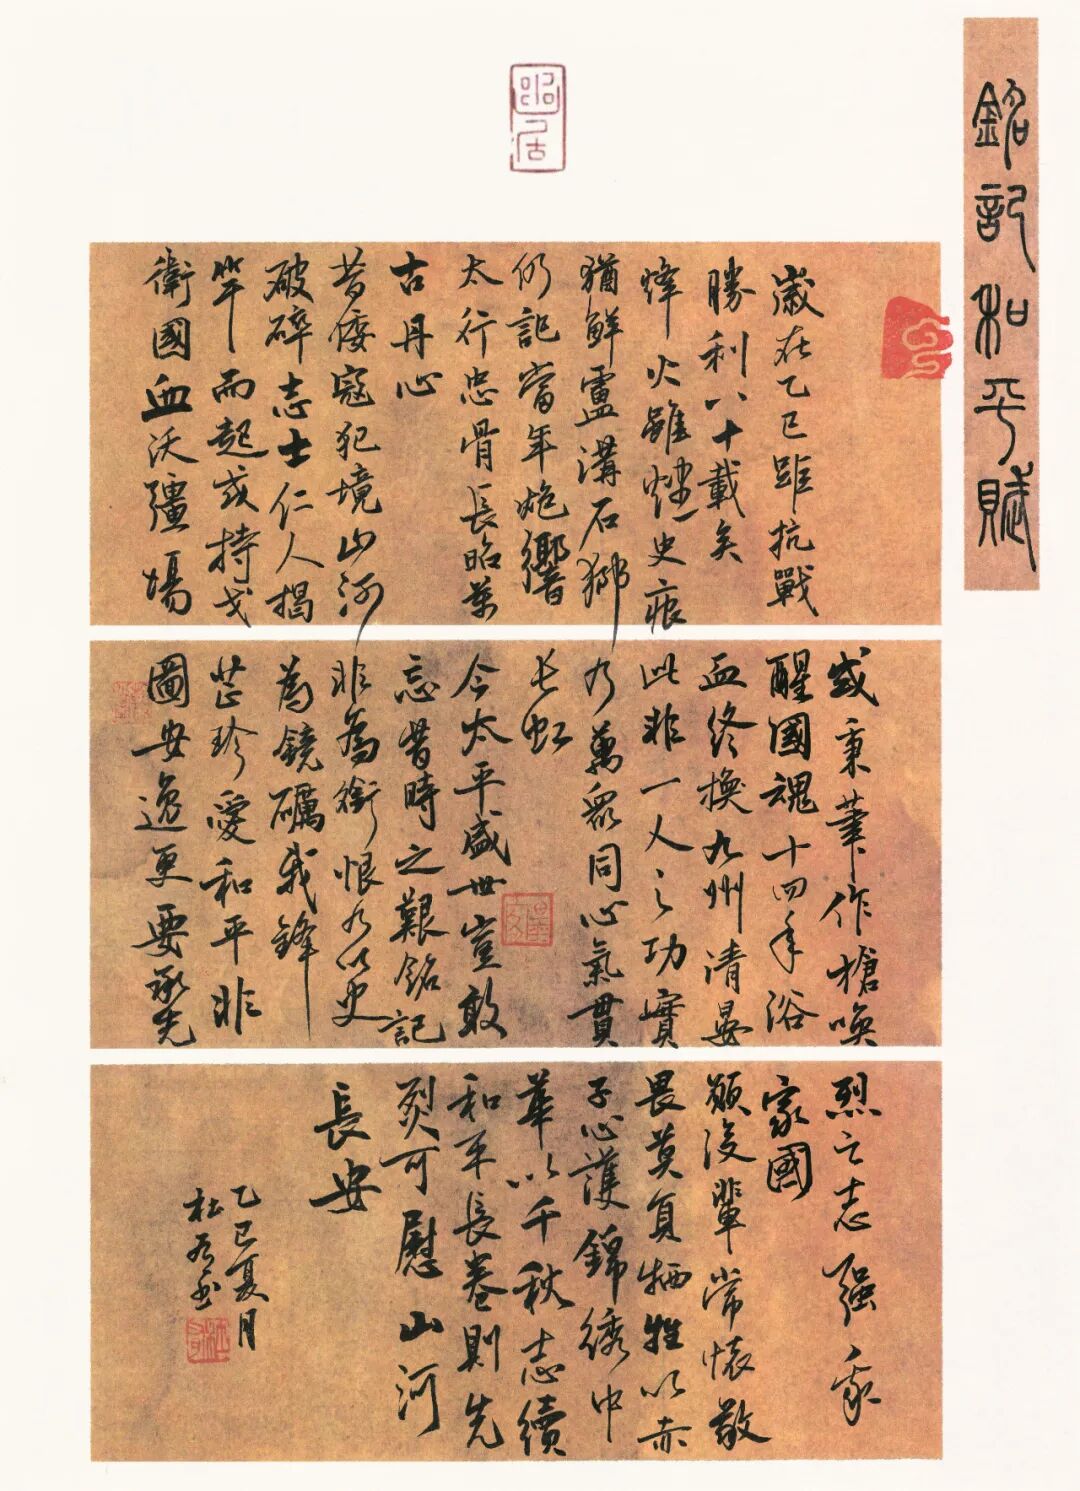 銘記和平賦
歲在乙巳距抗戰
勝利八十載矣
烽火雖熄史痕
猶鮮盧溝石獅
仍記當年炮響
太行忠骨長昭萬
古丹心
昔倭寇犯境山河
破碎志士仁人揭
竿而起或持戈
衛國血沃疆場
或秉筆作槍喚
醒國魂十四年浴
血終換九州清晏
此非一人之功實
乃萬眾同心氣貫
長虹
今太平盛世豈敢
忘昔時之艱銘記
非為銜恨乃以史
為鏡礪我鋒
芒珍愛和平非
圖安逸更要承先
烈之志強我
家國
願後輩常懷敬
畏莫負犧牲以赤
子心護錦繡中
華以千秋志續
和平長卷則先
烈可慰山河
長安
乙巳夏月